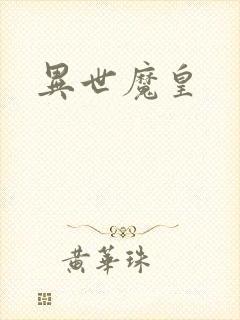 異世魔皇
黄華珠